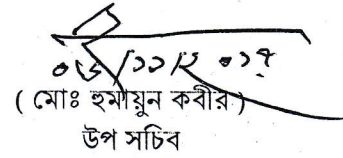 ০৬/১১/২০১৭
( মোঃ হুমায়ুন কবীর )
উপ সচিব